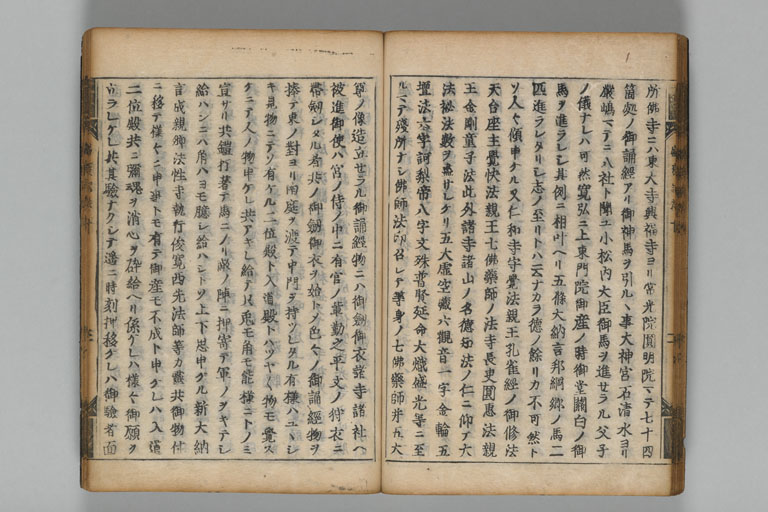 所佛寺ニハ東大寺興福寺ヨリ常光院圓明院マテ七十四
箇処ノ御誦経アリ御神馬ヲ引ルヽ事大神宮石清水ヨリ
嚴嶋マテニ八社ト聞ユ小松内大臣御馬ヲ進セラル父子
ノ儀ナレハ可然寛弘ニ上東門院御産ノ時御堂關白ノ御
馬ヲ進ラレシ其例ニ相叶ヘリ五條大納言邦綱郷ノ馬二
匹進ラレタリシ志ノ至リトハ云ナカラ德ノ餘リカ不可然ト
ソ人々傾申ケル又仁和寺守覺法親王孔雀経ノ御修法
天台座主覺快法親王七佛藥師ノ法寺長吏圓惠法親
王金剛童子法此外諸寺諸山ノ名德知法ノ仁ニ仰テ大
法祕法數ヲ盡サレケリ五大虚空藏六觀音一字金輪五
壇法六字訶梨帝八字文殊普賢延命大熾盛光等ニ至
ルマテ殘所ナシ佛師法印召レテ等身ノ七佛藥師并五大
尊ノ像造立セラル御誦経物ニハ御劔御衣諸寺諸社ヘ
被進御使ハ宮ノ侍ノ中ニ有官ノ輩勤之平文ノ狩衣ニ
帶劔シタル者共ノ御劔御衣ヲ始トメ色々ノ御誦経物ヲ
捧テ東ノ對ヨリ南庭ヲ渡テ中門ヲ持ツレタル有様ハユヽシ
キ見物ニテソ有ケル二位殿ト入道殿トハツヤ〱物モ覺ス
ケニテ人ノ物申ケレ共アキレ給テ只兎モ角モ能様ニトノミ
宣ケリ共鎧打著テ馬ニノリ敵ノ陣ニ押寄テ軍ノヲキテシ
給ハンニハ角ハヨモ臆シ給ハシトソ上下思申ケル新大納
言成親卿法性寺執行俊寛西光法師等カ靈共御物付
ニ移テ様々ニ申事トモ有テ御産モ不成ト申ケレハ入道
二位殿共ニ彌魂ヲ消心ヲ砕給ヘリ係ケレハ様々御願ヲ
立ラレケレ共其驗ナクシテ遙ニ時刻押移ケレハ御驗者面